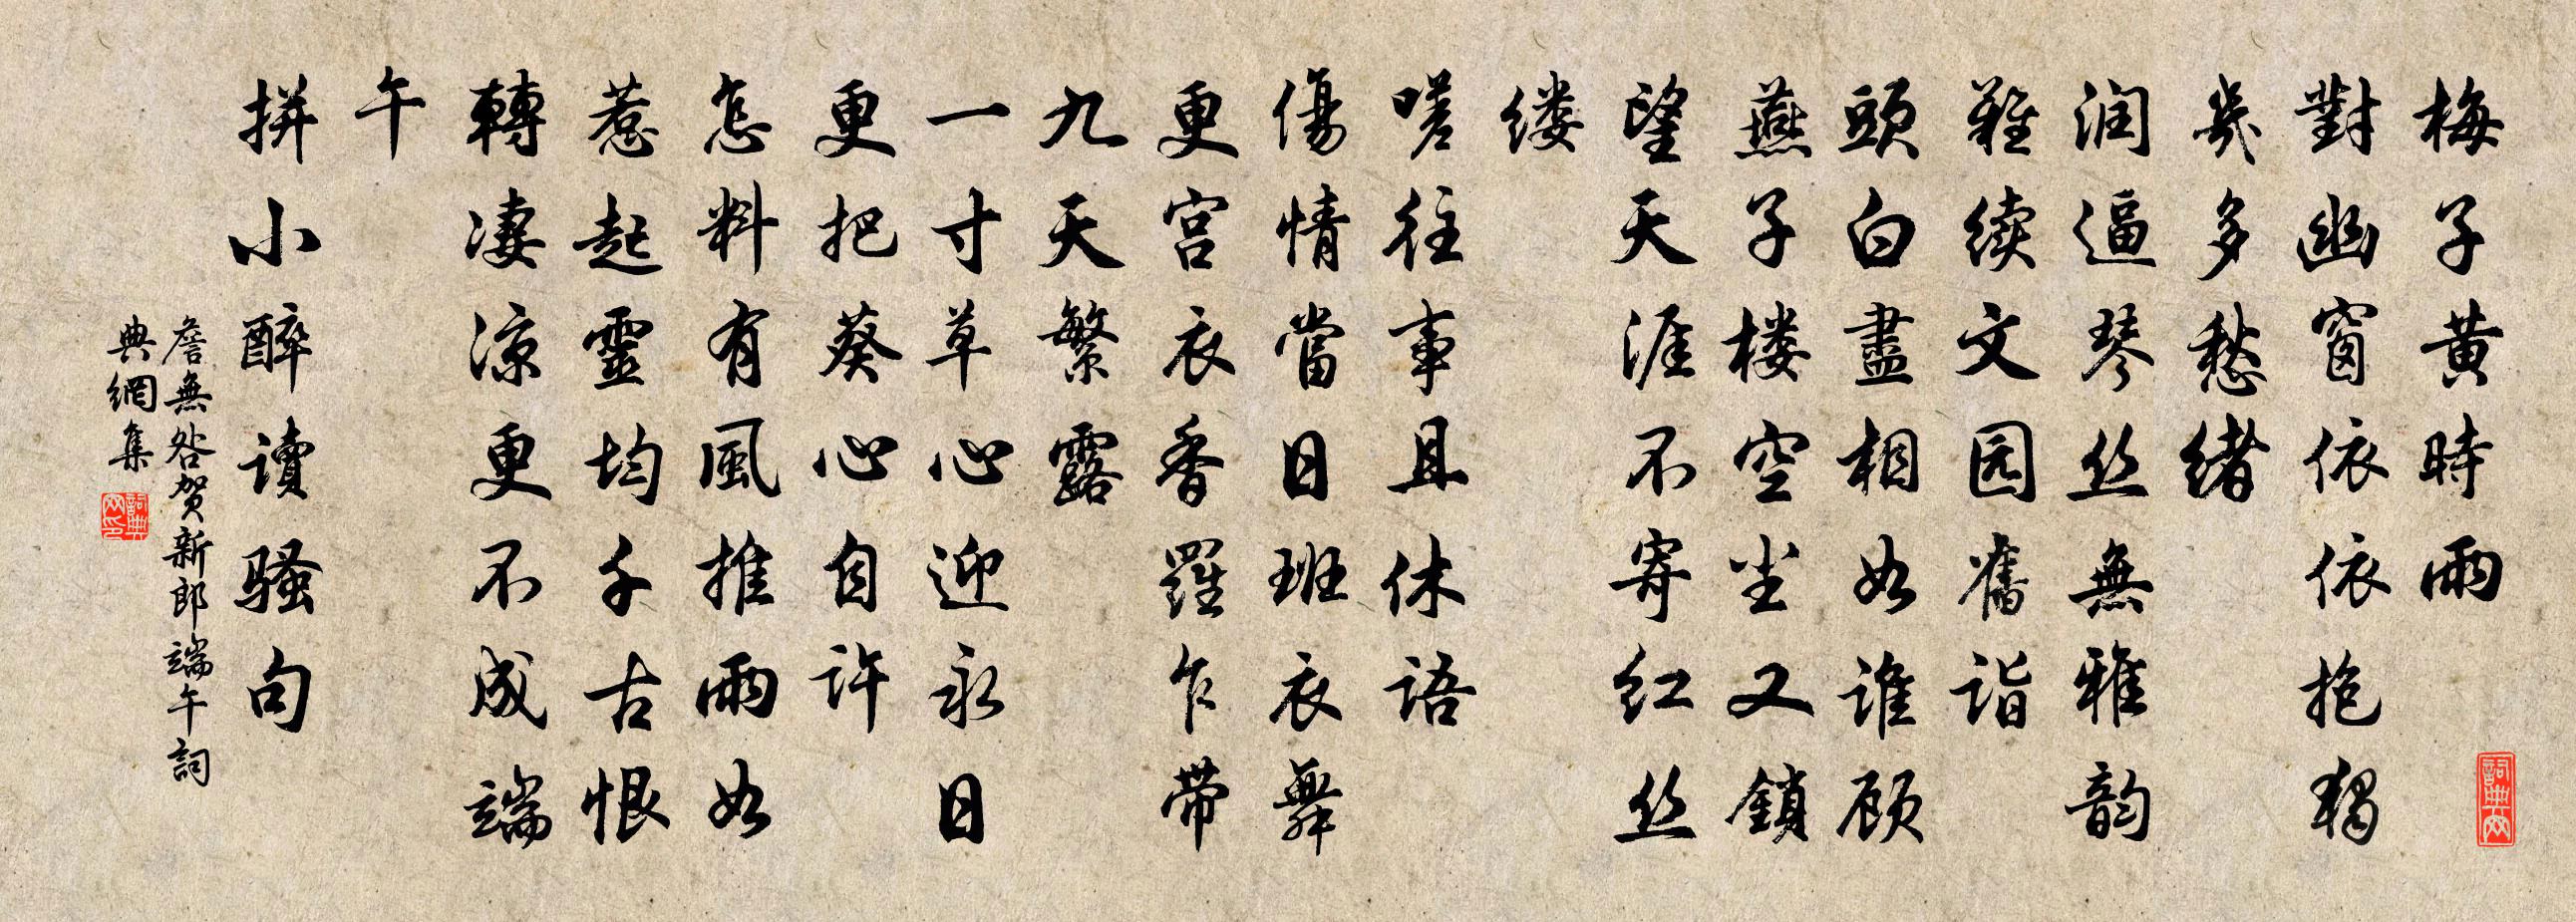 詞典网
梅子黄時雨
對幽窗依依抱獨
幾多愁绪
润逼琴丝無雅韵
難续文园舊诣
頭白盡相如谁顾
燕子楼空尘又鎖
望天涯不寄红丝
缕
嗟往事且休语
傷情當日班衣舞
更宫衣香羅乍带
九天繁露
一寸草心迎永日
更把葵心自许
怎料有風推雨如
惹起靈均千古恨
轉凄涼更不成端
午
拼小醉读骚句
詹無咎贺新郎端午詞
典網集
詞典网印